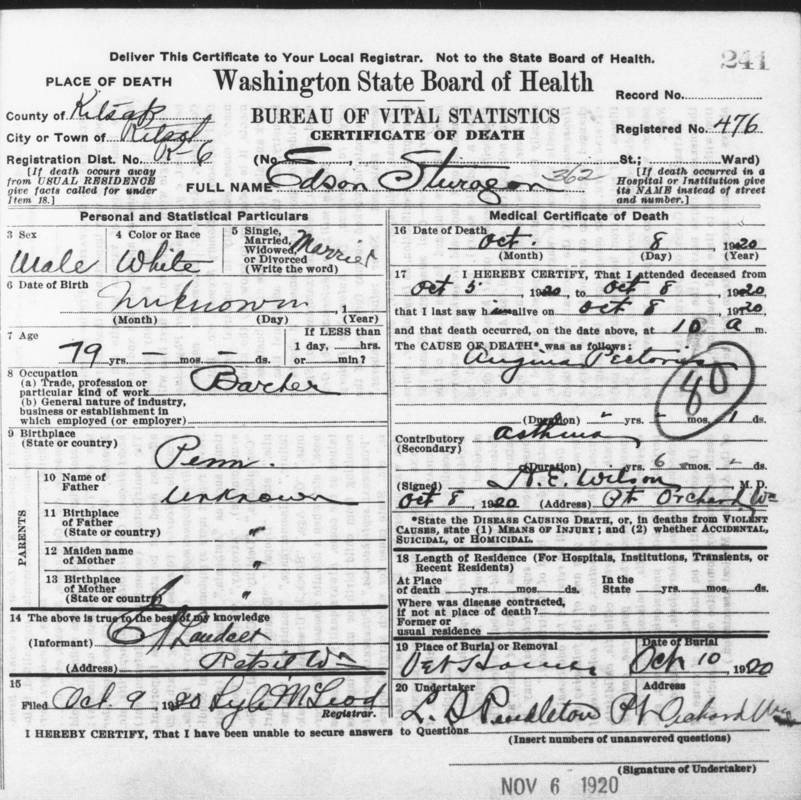 Deliver This Certificate to Your Local Registrar. Not to the State Board of Health.
241
PLACE OF DEATH
Washington State Board of Health
Record No.
County of Kitsap
BUREAU OF VITAL STATISTICS
City or Town of
CERTIFICATE OF DEATH
Registered No. 476
Registration Dist. No. R-6
(No. , St.; Ward)
[If death occurs away from USUAL RESIDENCE give facts called for under Item 18.]
FULL NAME Edson Sturgeon 362
[If death occurred in a Hospital or Institution give its NAME instead of street and number.]
Personal and Statistical Particulars
3 Sex
Male
4 Color or Race
White
5 Single, Married, Widowed, or Divorced (Write the word)
Married
6 Date of Birth
Unknown , 1
(Month) (Day) (Year)
7 Age
79 yrs. — mos. — ds.
If LESS than 1 day, hrs. or min.?
8 Occupation
(a) Trade, profession or particular kind of work
(b) General nature of industry, business or establishment in which employed (or employer)
9 Birthplace
(State or country)
Penn.
PARENTS
10 Name of Father
Unknown
11 Birthplace of Father
(State or country) "
12 Maiden name of Mother "
13 Birthplace of Mother
(State or country) "
14 The above is true to the best of my knowledge
(Informant)
(Address) Retsil Wn
15
Filed Oct. 9, 1920 Lyle McLeod
Registrar.
Medical Certificate of Death
16 Date of Death
Oct. 8, 1920
(Month) (Day) (Year)
17 I HEREBY CERTIFY, That I attended deceased from
Oct 5, 1920, to Oct 8, 1920,
that I last saw him alive on Oct 8, 1920
and that death occurred, on the date above, at 10 a m.
The CAUSE OF DEATH*, was as follows:
Angina Pectoris
80
(Duration) - yrs. - mos. 1 ds.
Contributory Asthma
(Secondary)
(Duration) yrs. 6 mos. - ds.
(Signed) H. E. Wilson, M. D.
Oct 8, 1920 (Address) Pt Orchard, Wn
*State the DISEASE CAUSING DEATH, or, in deaths from VIOLENT
CAUSES, state (1) MEANS OF INJURY; and (2) whether ACCIDENTAL,
SUICIDAL, or HOMICIDAL.
18 Length of Residence (For Hospitals, Institutions, Transients, or
Recent Residents)
At Place of death yrs. mos. ds.
In the State yrs. mos. ds.
Where was disease contracted,
if not at place of death?
Former or
usual residence
19 Place of Burial or Removal
Vet Home
Date of Burial
Oct 10 1920
20 Undertaker
L. S. Pendleton
Address
Pt Orchard Wn
I HEREBY CERTIFY, That I have been unable to secure answers to Questions
(Insert numbers of unanswered questions)
(Signature of Undertaker)
NOV 6 1920